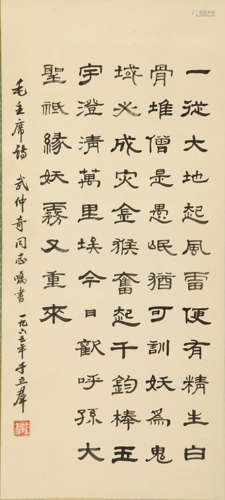 一從大地起風雷便有精生白
骨堆僧是愚氓猶可訓妖為鬼
蜮必成灾金猴奮起千鈞棒玉
宇澄清萬里埃今日歡呼孫大
聖祇緣妖霧又重來
毛主席詩 武仲奇同志囑書 一九六五年 于立群